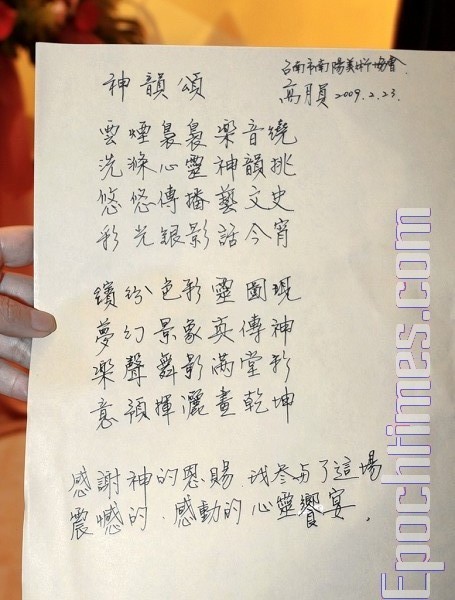 台南市南陽美術協會
神韻頌
高月員 2009.2.23.
雲煙裊裊樂音繞
洗滌心靈神韻挑
悠悠傳播藝文史
彩光銀影話今宵
繽紛色彩靈圖現
夢幻景象真傳神
樂聲舞影滿堂彩
意領揮灑畫乾坤
感謝神的恩賜 我參与了這場
震憾的、感動的心靈饗宴。
Epochtimes.com